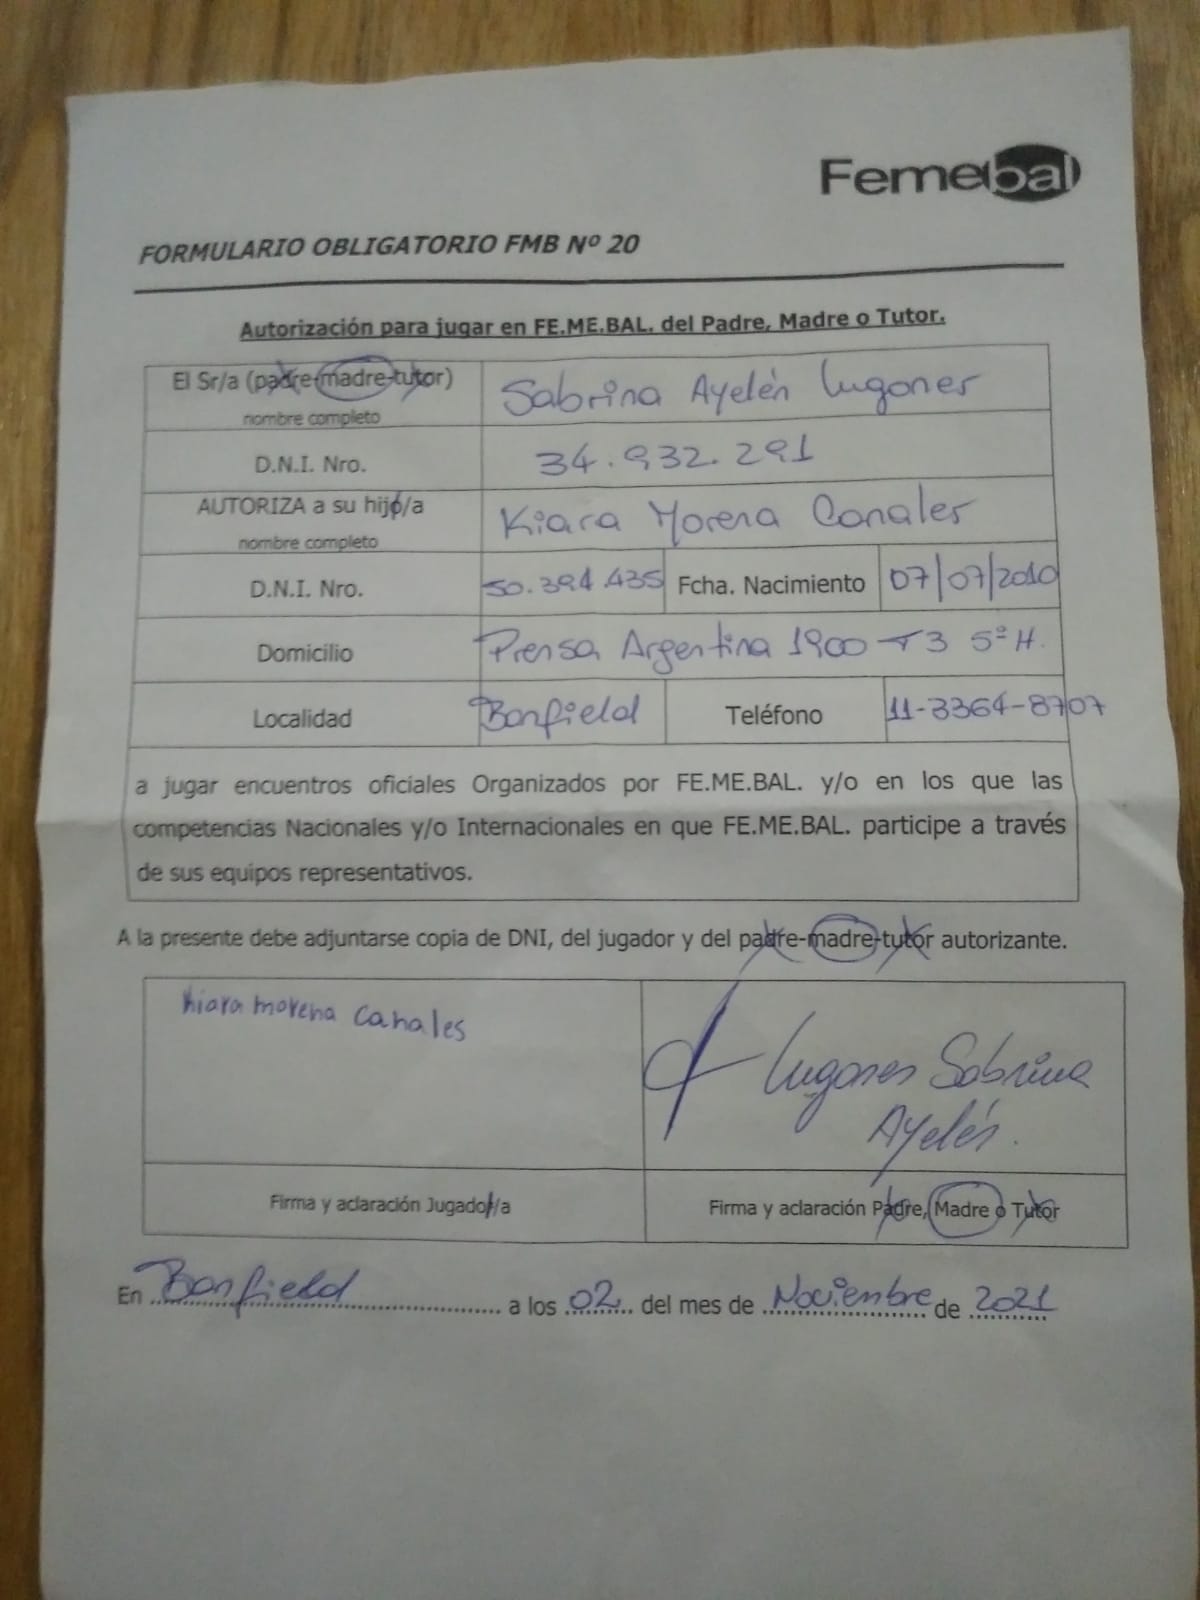 Femebal
FORMULARIO OBLIGATORIO FMB Nº 20
Autorización para jugar en FE.ME.BAL. del Padre, Madre o Tutor.
El Sr/a (padre-madre-tutor) Sabrina Ayelén Lugones
nombre completo
D.N.I. Nro. 34.932.291
AUTORIZA a su hijo/a Kiara Morena Canales
nombre completo
D.N.I. Nro. 50.394.435 Fcha. Nacimiento 07/07/2010
Domicilio Prensa Argentina 1900 T3 5º H.
Localidad Banfield Teléfono 11-3364-8707
a jugar encuentros oficiales Organizados por FE.ME.BAL. y/o en los que las
competencias Nacionales y/o Internacionales en que FE.ME.BAL. participe a través
de sus equipos representativos.
A la presente debe adjuntarse copia de DNI, del jugador y del padre-madre-tutor autorizante.
kiara morena canales
Lugones Sabrina
Ayelén.
Firma y aclaración Jugador/a Firma y aclaración Padre, Madre o Tutor
En Banfield a los 02 del mes de Noviembre de 2021